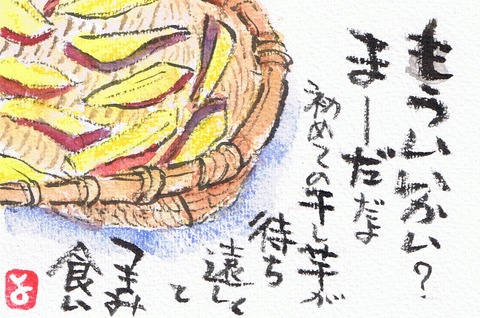 もういいかい?
まーだだよ
初めての干し芋が
待ち
遠しく
て
つまみ
食い